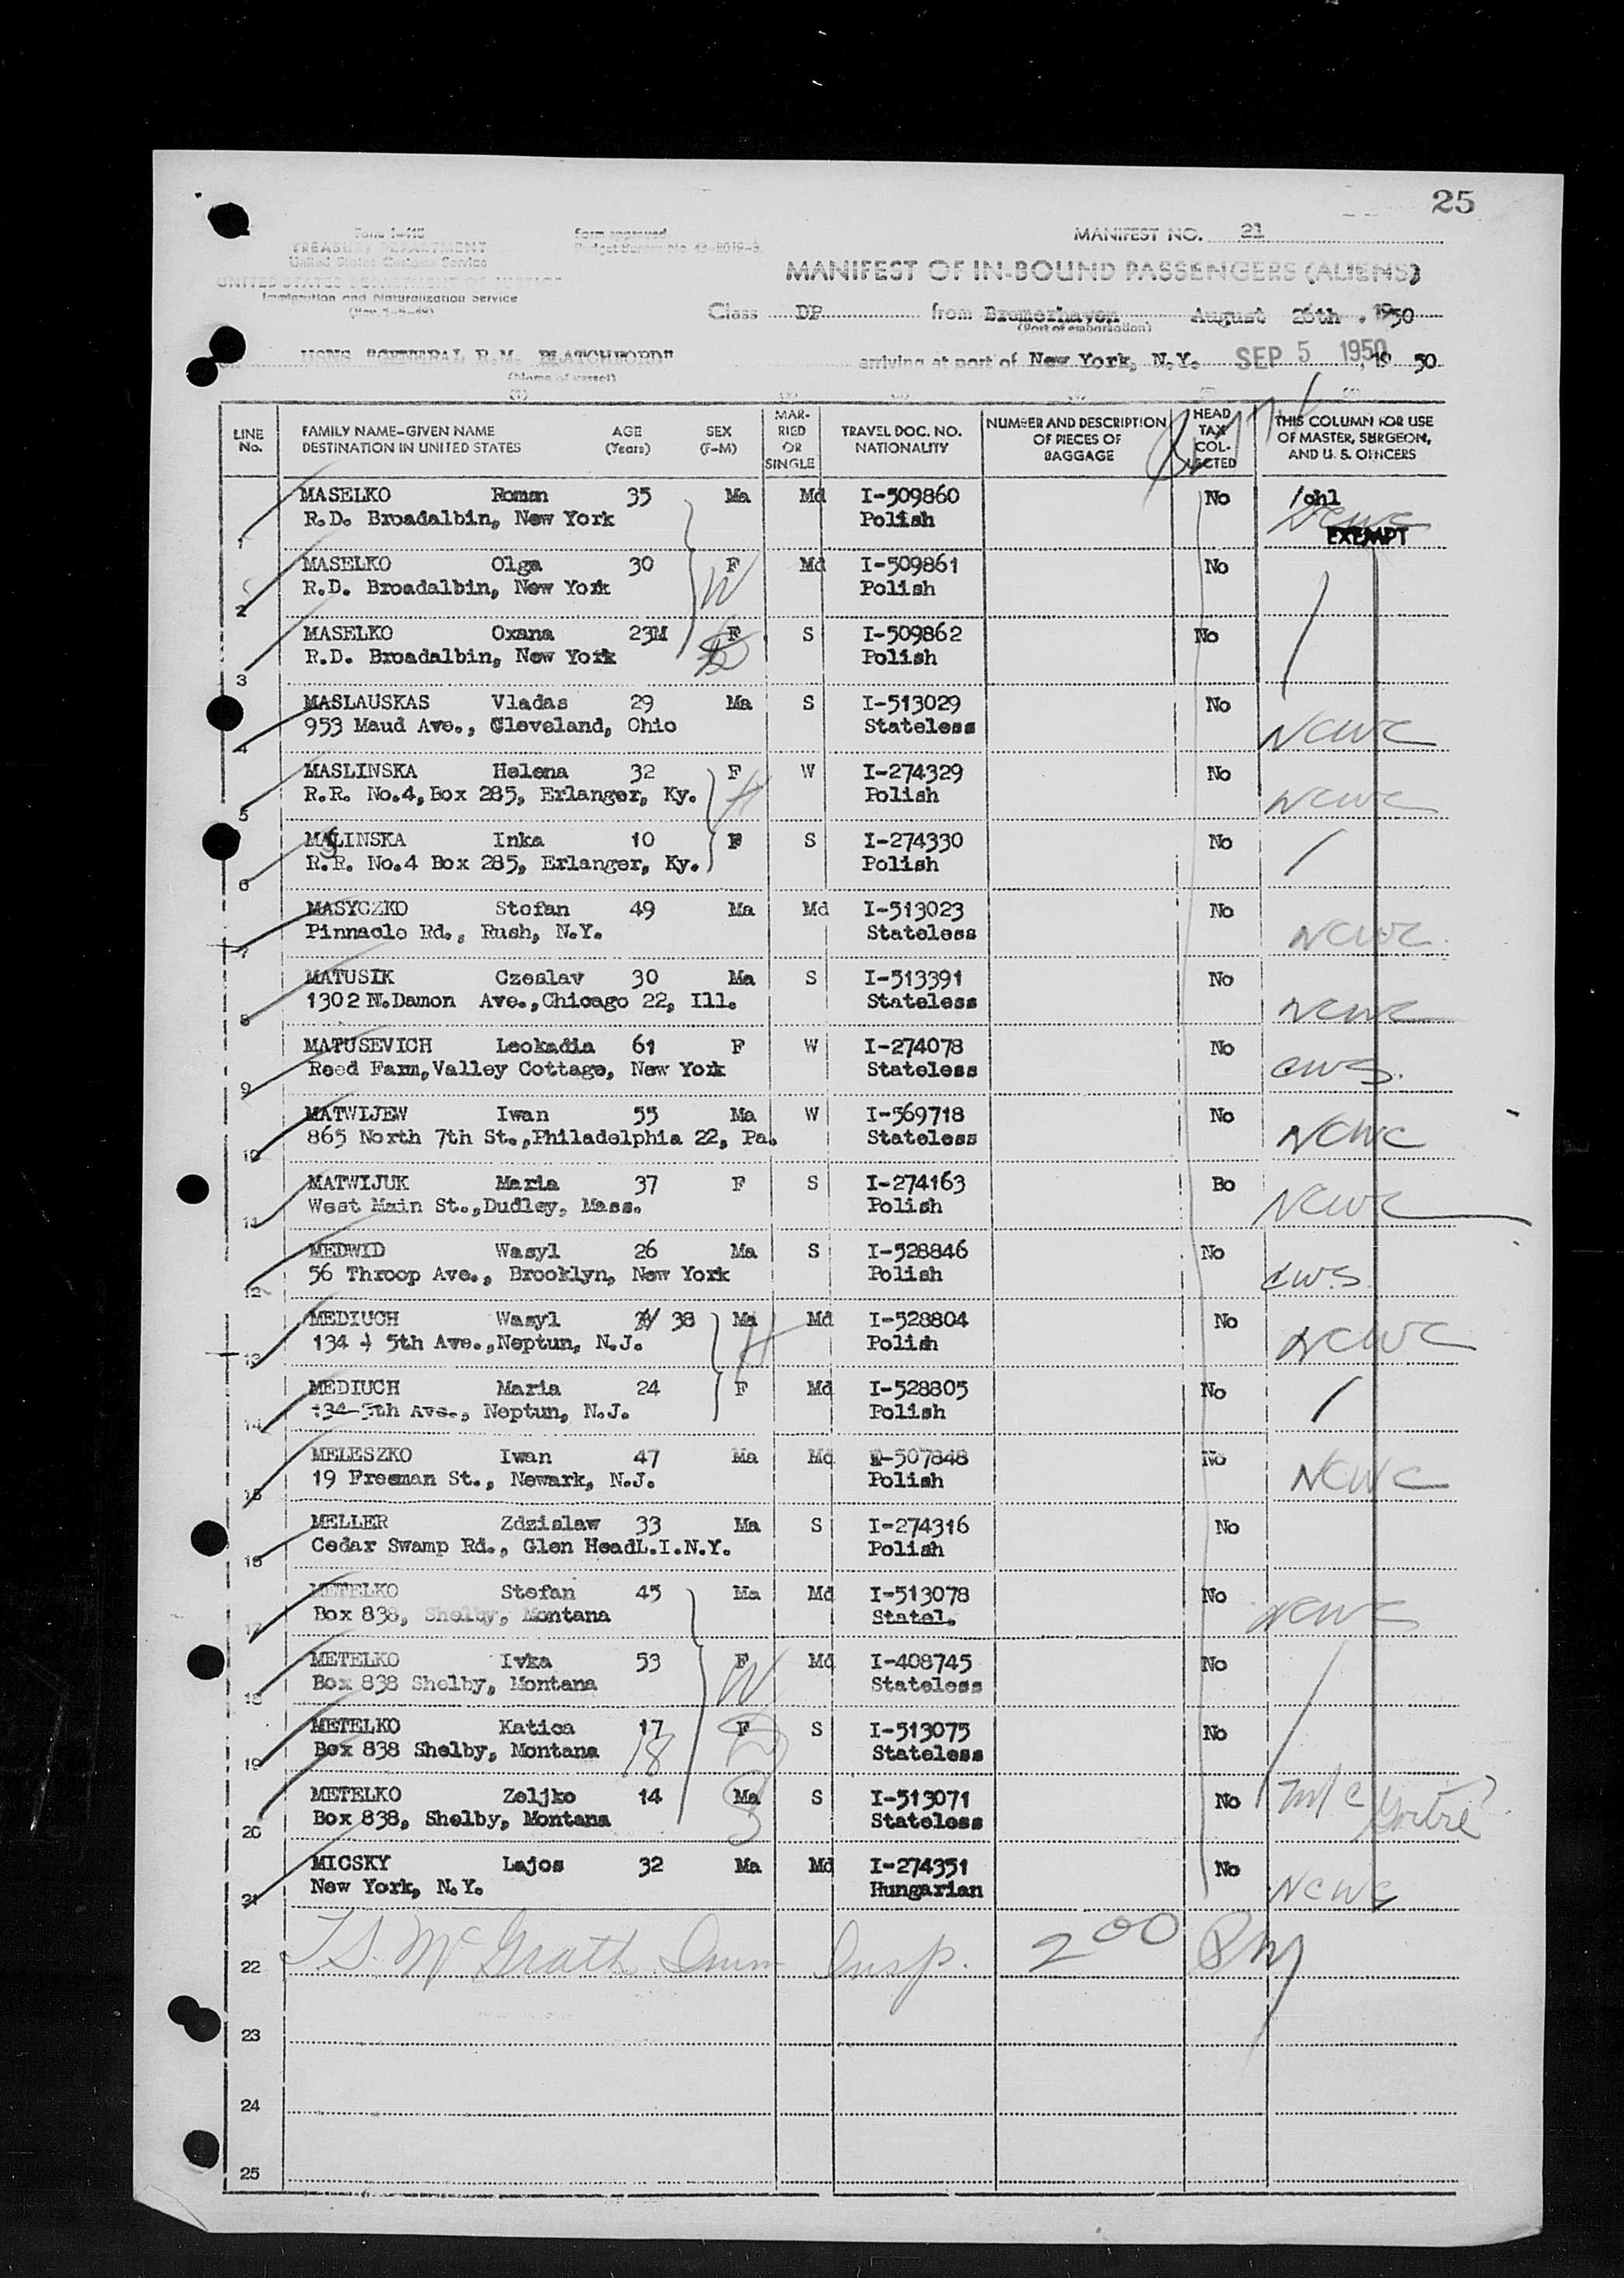 25
Form I-418
TREASURY DEPARTMENT
United States Customs Service
UNITED STATES DEPARTMENT OF JUSTICE
Immigration and Naturalization Service
Form approved
Budget Bureau No. 43-R019-3.
MANIFEST NO. 21
MANIFEST OF IN-BOUND PASSENGERS (ALIENS)
Class DP from Bremerhaven August 26th, 1950
(Port of embarkation)
USNS "GENERAL R.M. BLATCHFORD" arriving at port of New York, N.Y. SEP 5 1950, 19 50
(Name of vessel)
LINE No. FAMILY NAME-GIVEN NAME DESTINATION IN UNITED STATES AGE (Years) SEX (F-M) MARRIED OR SINGLE TRAVEL DOC. NO. NATIONALITY NUMBER AND DESCRIPTION OF PIECES OF BAGGAGE HEAD TAX COLLECTED THIS COLUMN FOR USE OF MASTER, SURGEON, AND U. S. OFFICERS
MASELKO Roman 35 Ma Md I-509860 No /chl
1 R.D. Broadalbin, New York Polish EXEMPT
MASELKO Olga 30 F Md I-509861 No
2 R.D. Broadalbin, New York Polish
MASELKO Oxana 23M F S I-509862 No
3 R.D. Broadalbin, New York Polish
MASLAUSKAS Vladas 29 Ma S I-513029 No
4 953 Maud Ave., Cleveland, Ohio Stateless NCWC
MASLINSKA Helena 32 F W I-274329 No
5 R.R. No.4, Box 285, Erlanger, Ky. Polish NCWC
MASLINSKA Inka 10 F S I-274330 No
6 R.R. No.4 Box 285, Erlanger, Ky. Polish
MASYCZKO Stefan 49 Ma Md I-513023 No
7 Pinnacle Rd., Rush, N.Y. Stateless NCWC
MATUSIK Czeslav 30 Ma S I-513391 No
8 1302 N.Damon Ave.,Chicago 22, Ill. Stateless NCWC
MATUSEVICH Leokadia 61 F W I-274078 No
9 Reed Farm,Valley Cottage, New York Stateless CWS.
MATWIJEW Iwan 55 Ma W I-569718 No
10 865 North 7th St.,Philadelphia 22, Pa. Stateless NCWC
MATWIJUK Maria 37 F S I-274163 Bo
11 West Main St.,Dudley, Mass. Polish NCWC
MEDWID Wasyl 26 Ma S I-528846 No
12 56 Throop Ave., Brooklyn, New York Polish CWS.
MEDIUCH Wasyl 38 Ma Md I-528804 No
13 134 - 5th Ave.,Neptun, N.J. Polish NCWC
MEDIUCH Maria 24 F Md I-528805 No
14 134-5th Ave., Neptun, N.J. Polish
MELESZKO Iwan 47 Ma Md I-507848 No
15 19 Freeman St., Newark, N.J. Polish NCWC
MELLER Zdzislaw 33 Ma S I-274316 No
16 Cedar Swamp Rd., Glen HeadL.I.N.Y. Polish
METELKO Stefan 45 Ma Md I-513078 No
17 Box 838, Shelby, Montana Statel. NCWC
METELKO Ivka 53 F Md I-408745 No
18 Box 838 Shelby, Montana Stateless
METELKO Katica 17 18 F S I-513075 No
19 Box 838 Shelby, Montana Stateless
METELKO Zeljko 14 Ma S I-513071 No
20 Box 838, Shelby, Montana Stateless
MICSKY Lajos 32 Ma Md I-274351 No
21 New York, N.Y. Hungarian NCWC
22 T.S. McGrath Imm Insp. 2 00
23
24
25